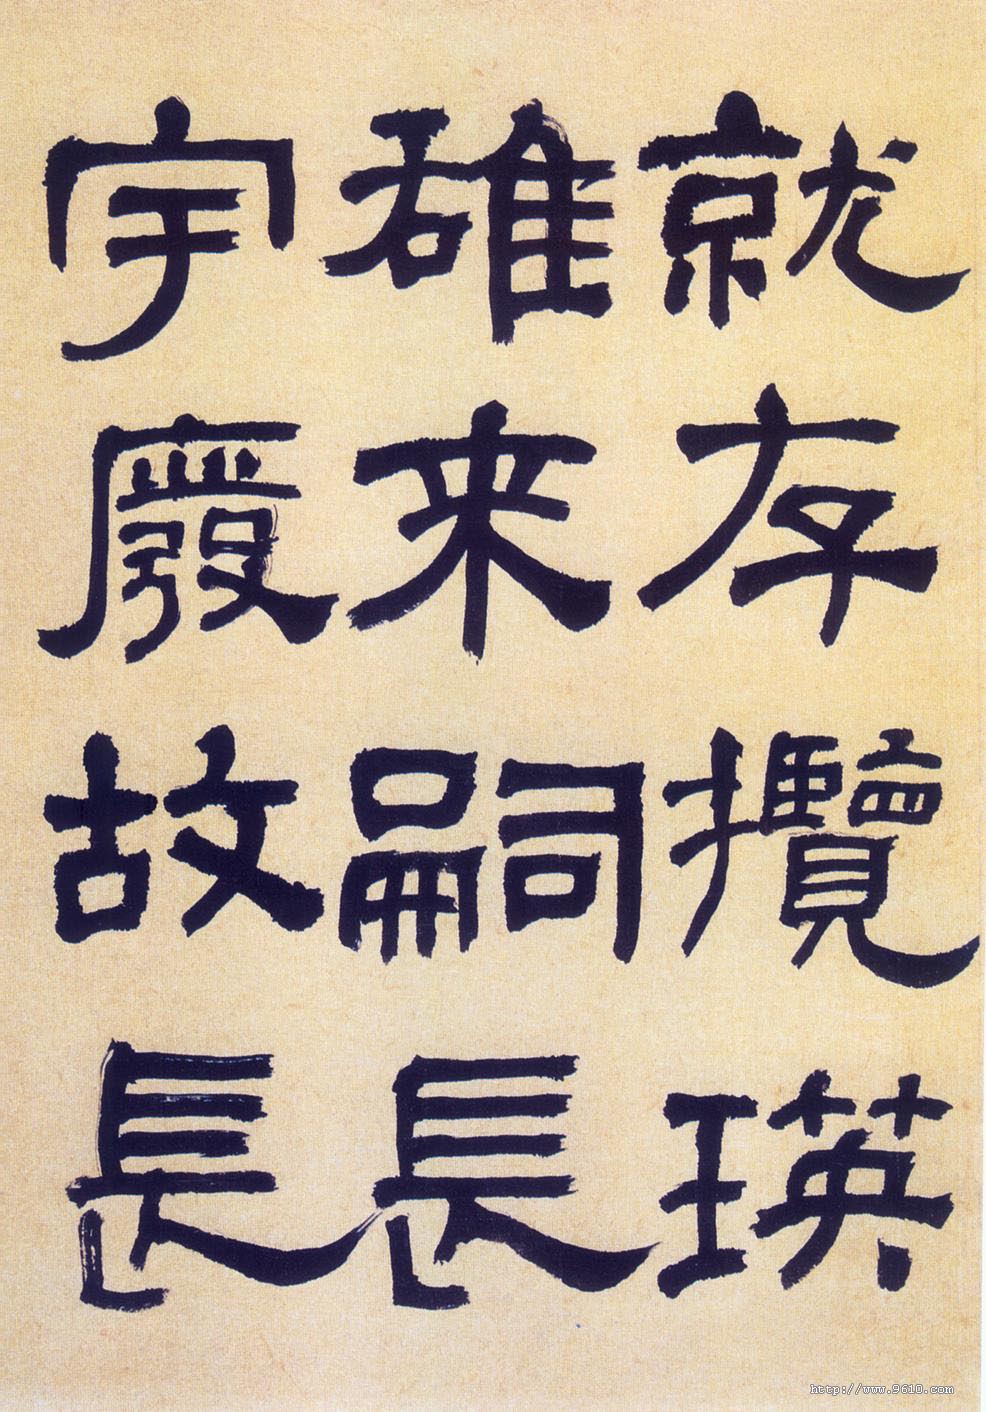 就存攬瑛
雄来嗣長
宇廢故長
http://www.9610.com